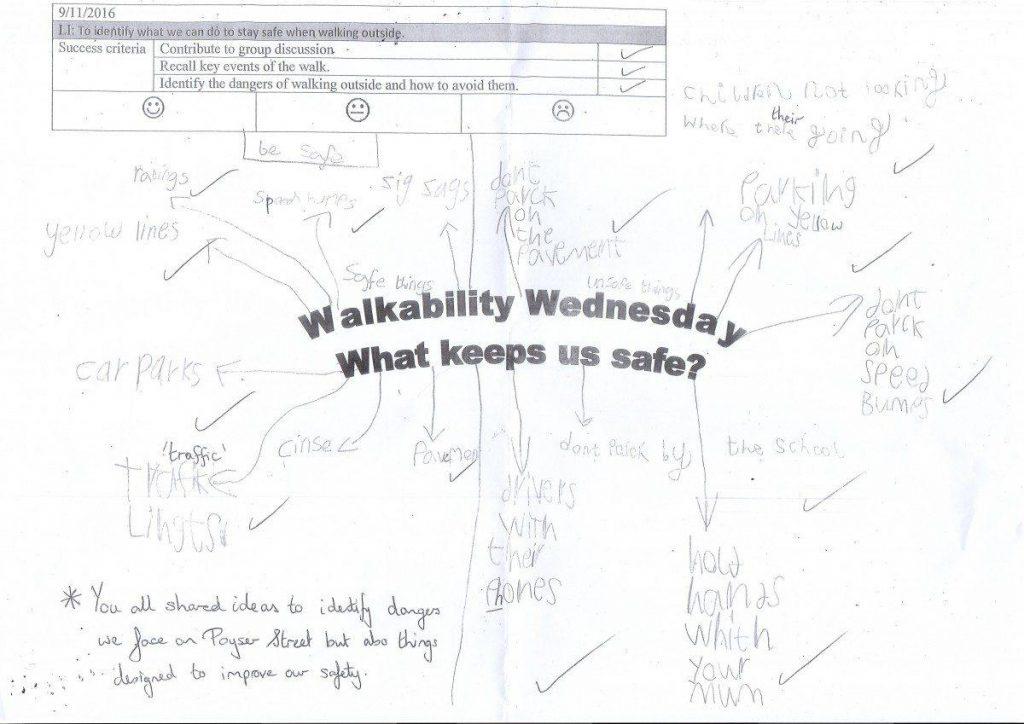 9/11/2016
LI: To identify what we can do to stay safe when walking outside.
Success criteria
Contribute to group discussion
Recall key events of the walk.
Identify the dangers of walking outside and how to avoid them.
be safe
children not looking
where their going
railings
speed humps
sig sags
dont
parck
on
the
pavement
parking
on yellow
lines
yellow lines
safe things
unsafe things
Walkability Wednesday
What keeps us safe?
dont
parck
on
speed
Bumps
car parks
'traffic'
Lingts
cinse
Pavement
drivers
with
their
phones
dont parck by the school
hold
hands
whith
your
mum
* You all shared ideas to identify dangers
we face on Poyser Street but also things
designed to improve our safety.